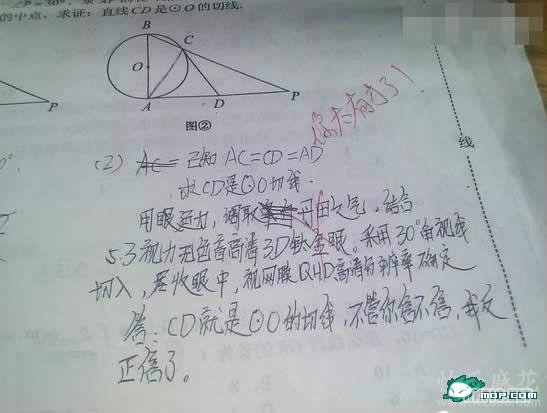 ∠P=30°,
的中点，求证：直线CD是⊙O的切线.
B
C
O
A
D
P
P
图②
你太有才了！
线
(2) AC= 已知 AC=CD=AD
求CD是⊙O切线.
用眼运力，调取丹田之气，结合
5.3视力无色盲高清3D钛金眼。采用30°角视线
切入，尽收眼中，视网膜QHD高清分辨率确定
答：CD就是⊙O的切线，不管你信不信，我反
正信了。
快乐麻花
MOP.com